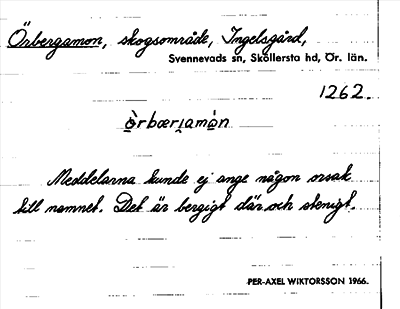 Örbergamon, skogsområde, Ingelsgård,
Svennevads sn, Sköllersta hd, Ör. län.
1262.
Meddelarna kunde ej ange någon orsak
till namnet. Det är bergigt där och stenigt.
PER-AXEL WIKTORSSON 1966.